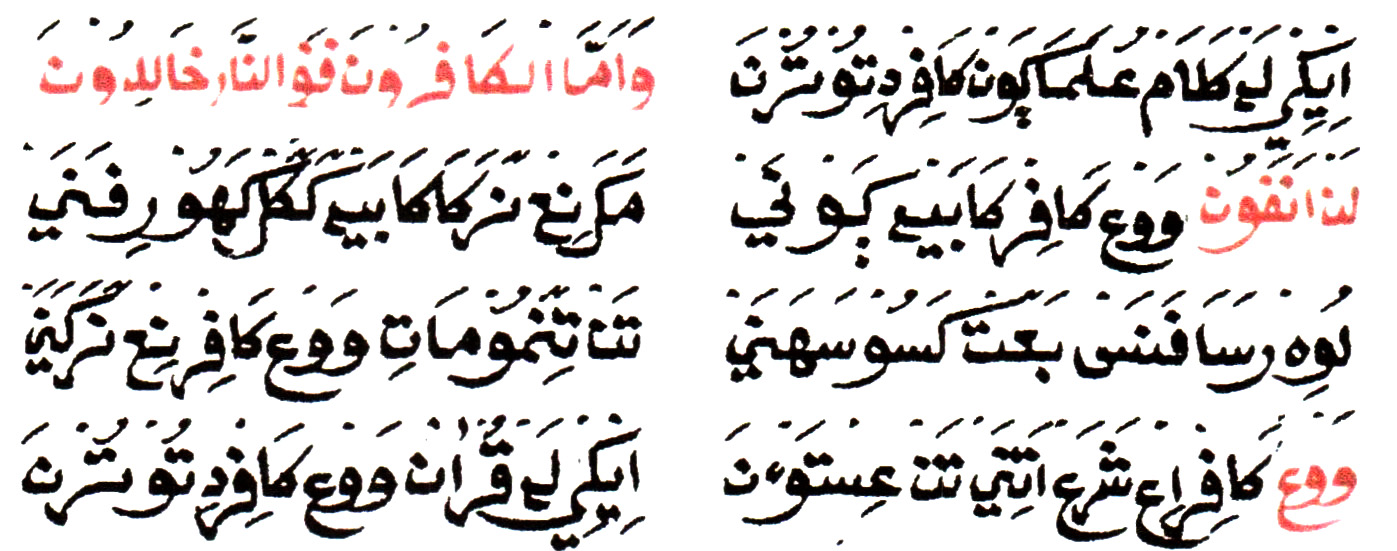 اِيكِي لَيْ كَلَامْ عُلَمَاكَوْن كَافِرْ دِتُوْتُرْنَ
لن انفون ووع كَافِرْ كَابَيهْ ݢَوَنَي
لُوِه رَسَا فَنَسَ بَعَتْ كَسُوسَهَنَي
ووع كَافِرْ اِع شَرَع اَتِنَي تَن عِستَوْءنَ
وامّا الكافرون ففو النار خالدون
مَرَ نِع نَرَكَا كَابَيهْ كَكَلْ كَهُورِفَنَي
تَن تِنَمُو مَاتِ وَوع كَافِرْ نِع نَرَكَنَي
اِيكِي لَيْ قُرْاٰن وَوع كَافِرْ دِتُوْتُرْنَ